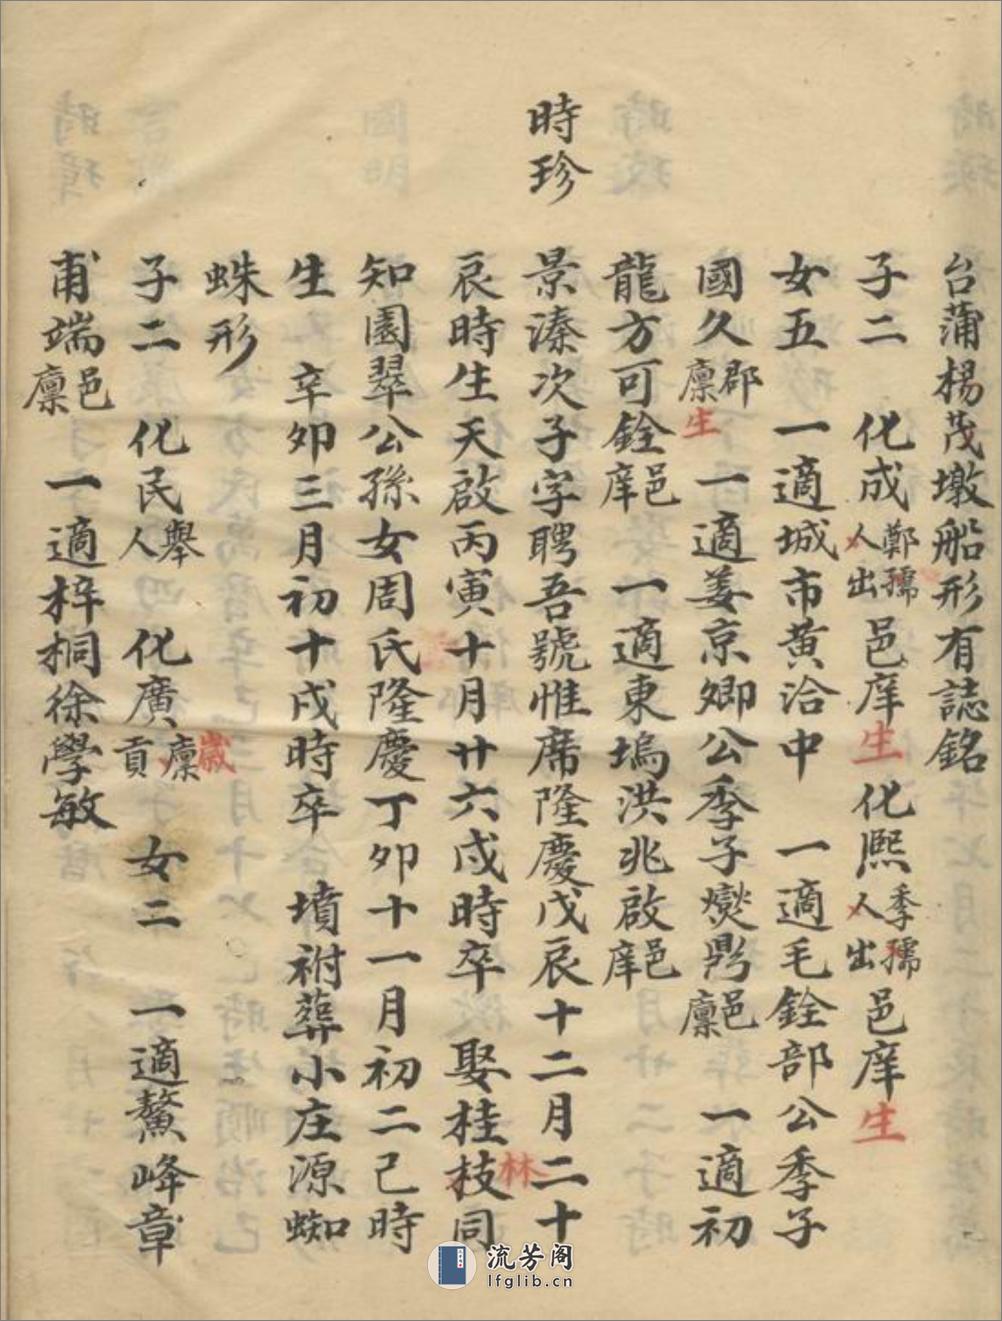 台蒲楊茂墩船形有誌銘
子二　化成鄭孺人出邑庠生化熙季孺人出邑庠生
女五　一適城市黄洽中　一適毛銓部公季子
國久郡廪生　一適姜京卿公季子燮鼎邑廪　一適初
龍方可銓邑庠　一適東塢洪兆啟邑庠
時珍
景溱次子字聘吾號惟席隆慶戊辰十二月二十
辰時生天啟丙寅十月廿六戍時卒　娶桂林枝同
知園翠公孫女周氏隆慶丁夘十一月初二己時
生　辛夘三月初十戍時卒　墳祔葬小庄源蜘
蛛形
子二　化民舉人　化廣歲廪貢　女二　一適鰲峰章
甫端邑廪　一適梓桐徐學敏
流芳阁
lfglib.cn